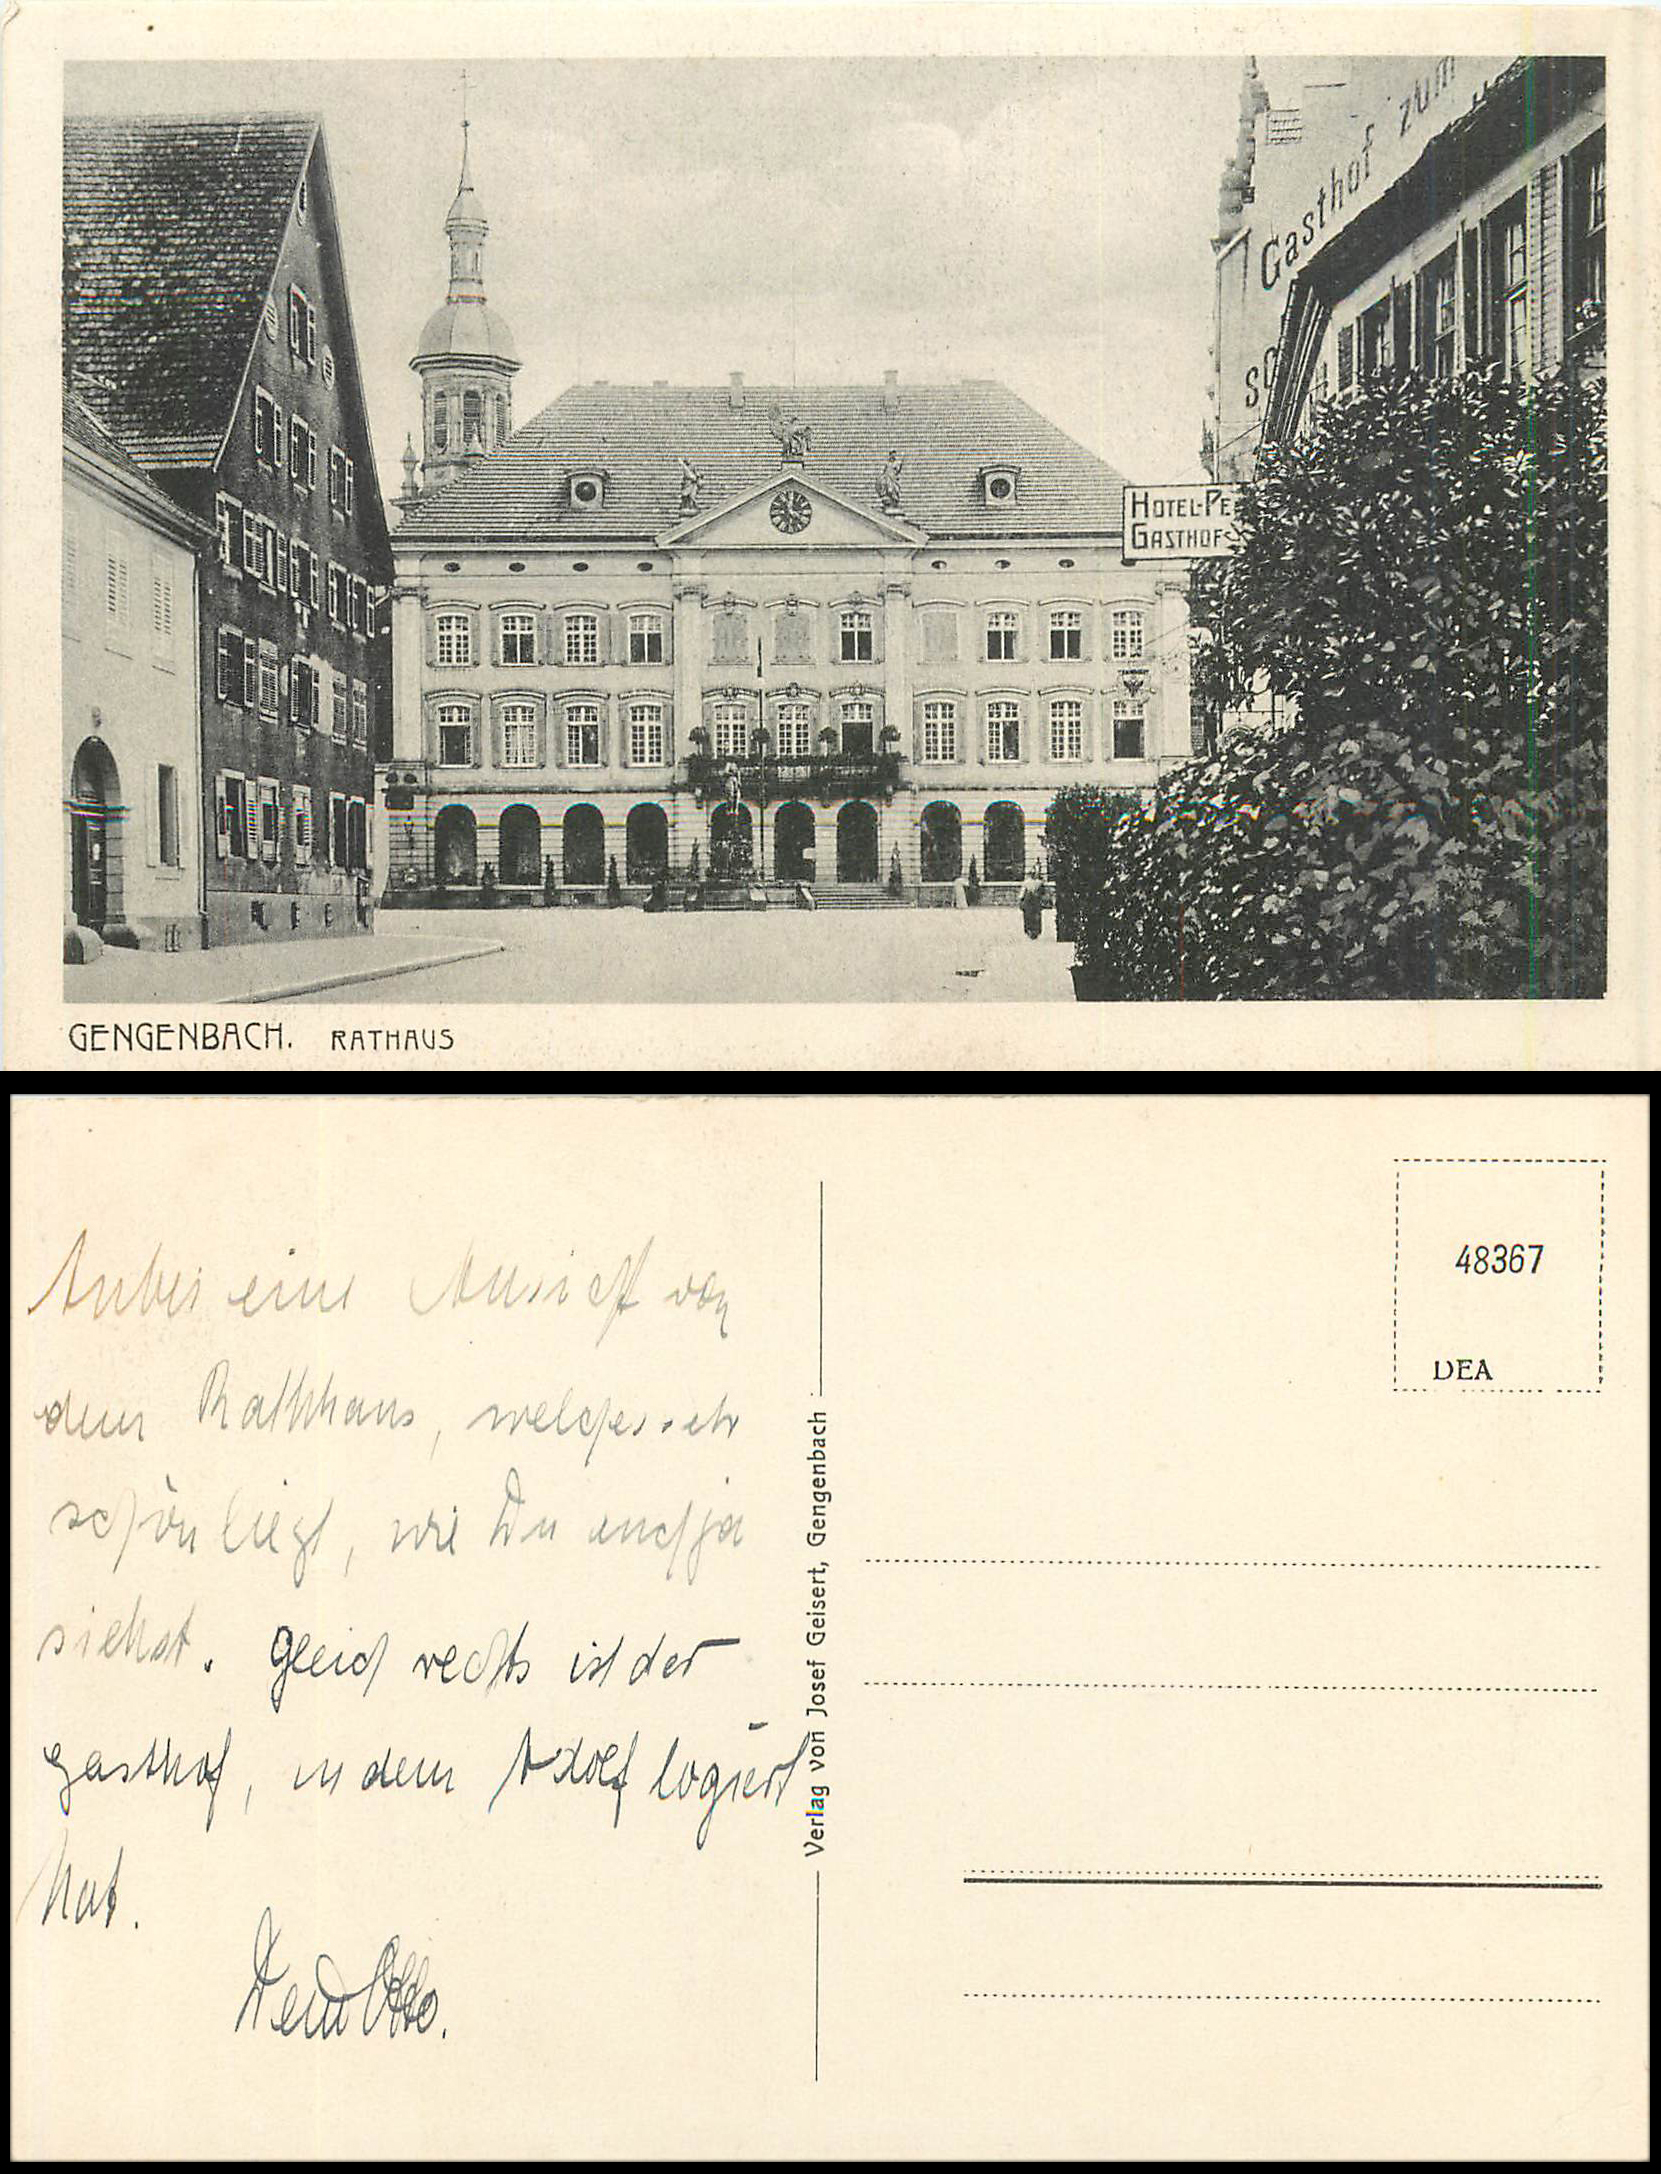 Gasthof zum
HOTEL-PE
GASTHOF
GENGENBACH. RATHAUS
Anbei eine Ansicht von
dem Rathhaus, welches sehr
schön liegt, wie Du auch ja
siehst. Gleich rechts ist der
Gasthof, in dem Adolf logiert
hat.
Dein Otto.
Verlag von Josef Geisert, Gengenbach
48367
DEA